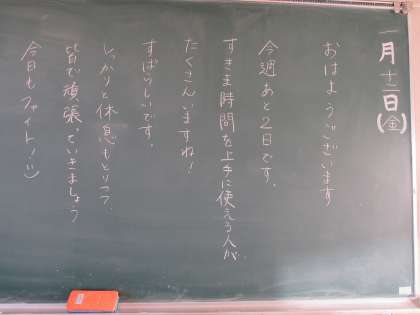 一月十二日(金)
おはようございます
今週あと2日です。
すきま時間を上手に使える人が
たくさんいますね!
すばらしいです。
しっかりと休息もとりつつ、
皆で頑張っていきましょう
今日もファイト!!:)